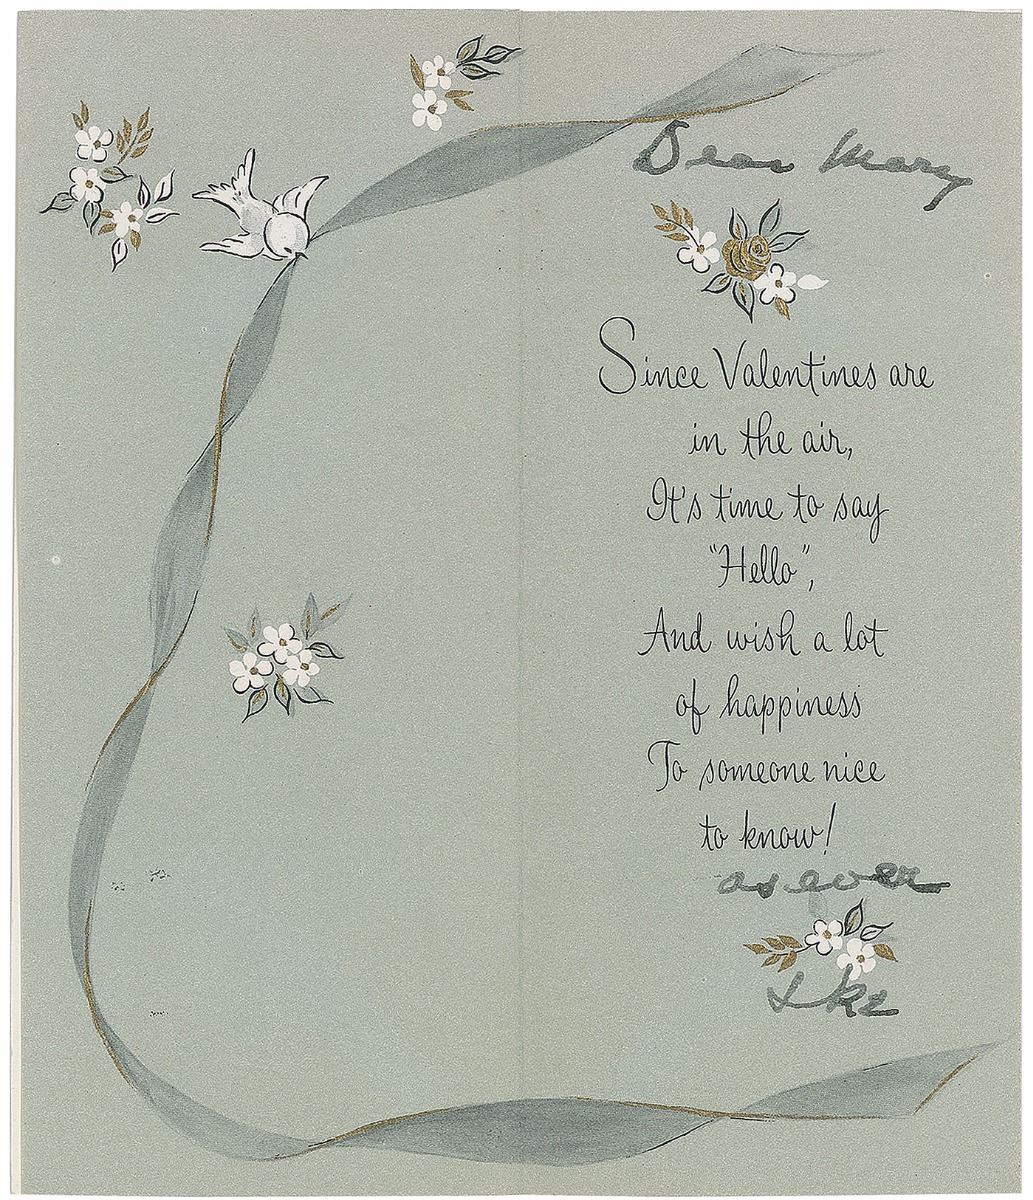 Dear Mary
Since Valentines are
in the air,
It's time to say
"Hello",
And wish a lot
of happiness
To someone nice
to know!
as ever
Ike